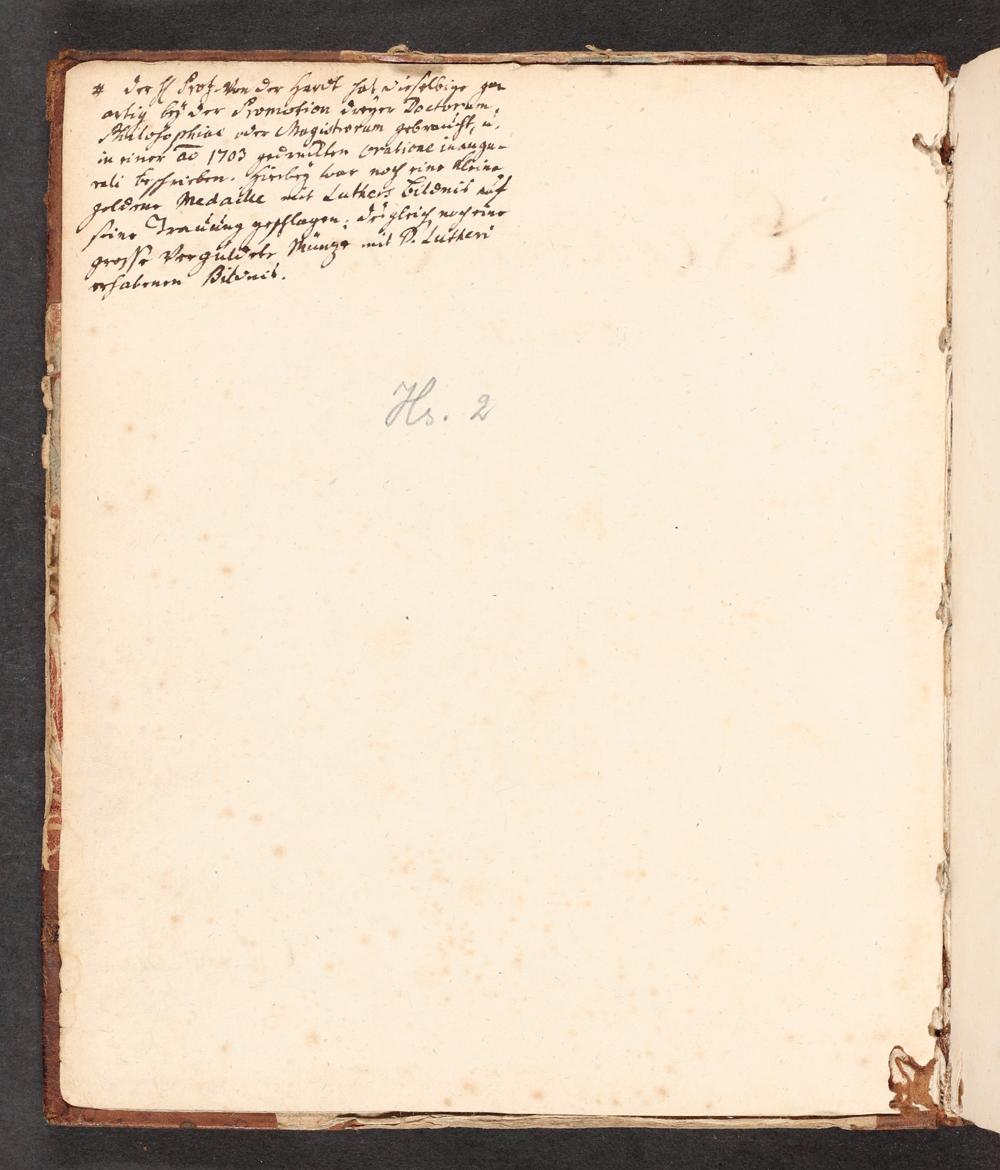 * der H Prof. Von der Hardt hat dieselbige gar
artig beÿ der Promotion dreÿer Doctorum
Philosophiae oder Magistrorum gebraucht, u.
in einer ao 1703 gedruckten oratione inaugu-
rali beschrieben. Hierbeÿ war noch eine kleine
goldene Medaille mit Luthers Bildnis auf
seine Trauung geschlagen; desgleich noch eine
grosse Verguldete Müntze mit D. Lutheri
erhabenen Bildnis.
Hs. 2